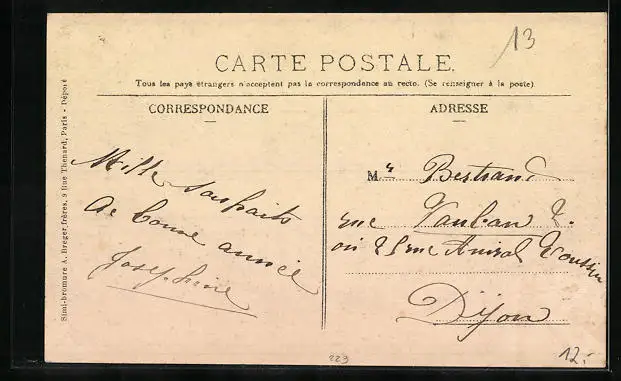 13
CARTE POSTALE.
Tous les pays étrangers n'acceptent pas la correspondance au recto. (Se renseigner à la poste)
CORRESPONDANCE
Mille souhaits
de bonne année
Joséphine
ADRESSE
Mr Bertrand
rue Vauban
ou rue Amiral Roussin
Dijon
Simi-bromure A. Breger frères, 9 Rue Thenard, Paris - Déposé
223
12.-